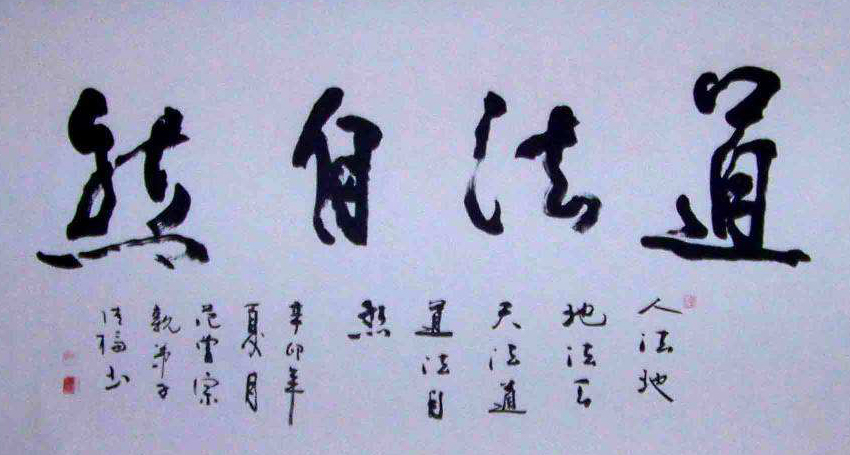 道法自然
人法地
地法天
天法道
道法自
然
辛卯年
夏月
范曾宗
親弟子
福書